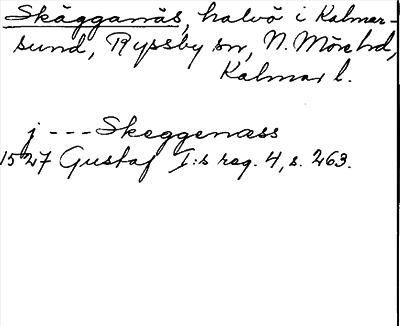 Skägganäs, halvö i Kalmar-
sund, Ryssby sn, N. Möre hd,
Kalmar l.
j --- Skeggenæss
1527 Gustaf I:s reg. 4, s. 263.